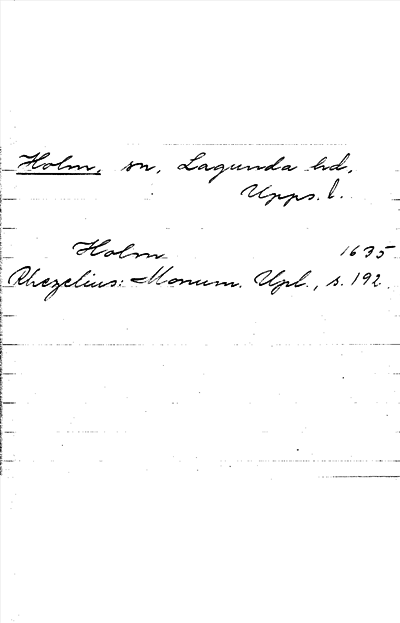 Holm, sn, Lagunda hd,
Upps. l.
Holm 1635
Rhezelius: Monum. Upl., s. 192.